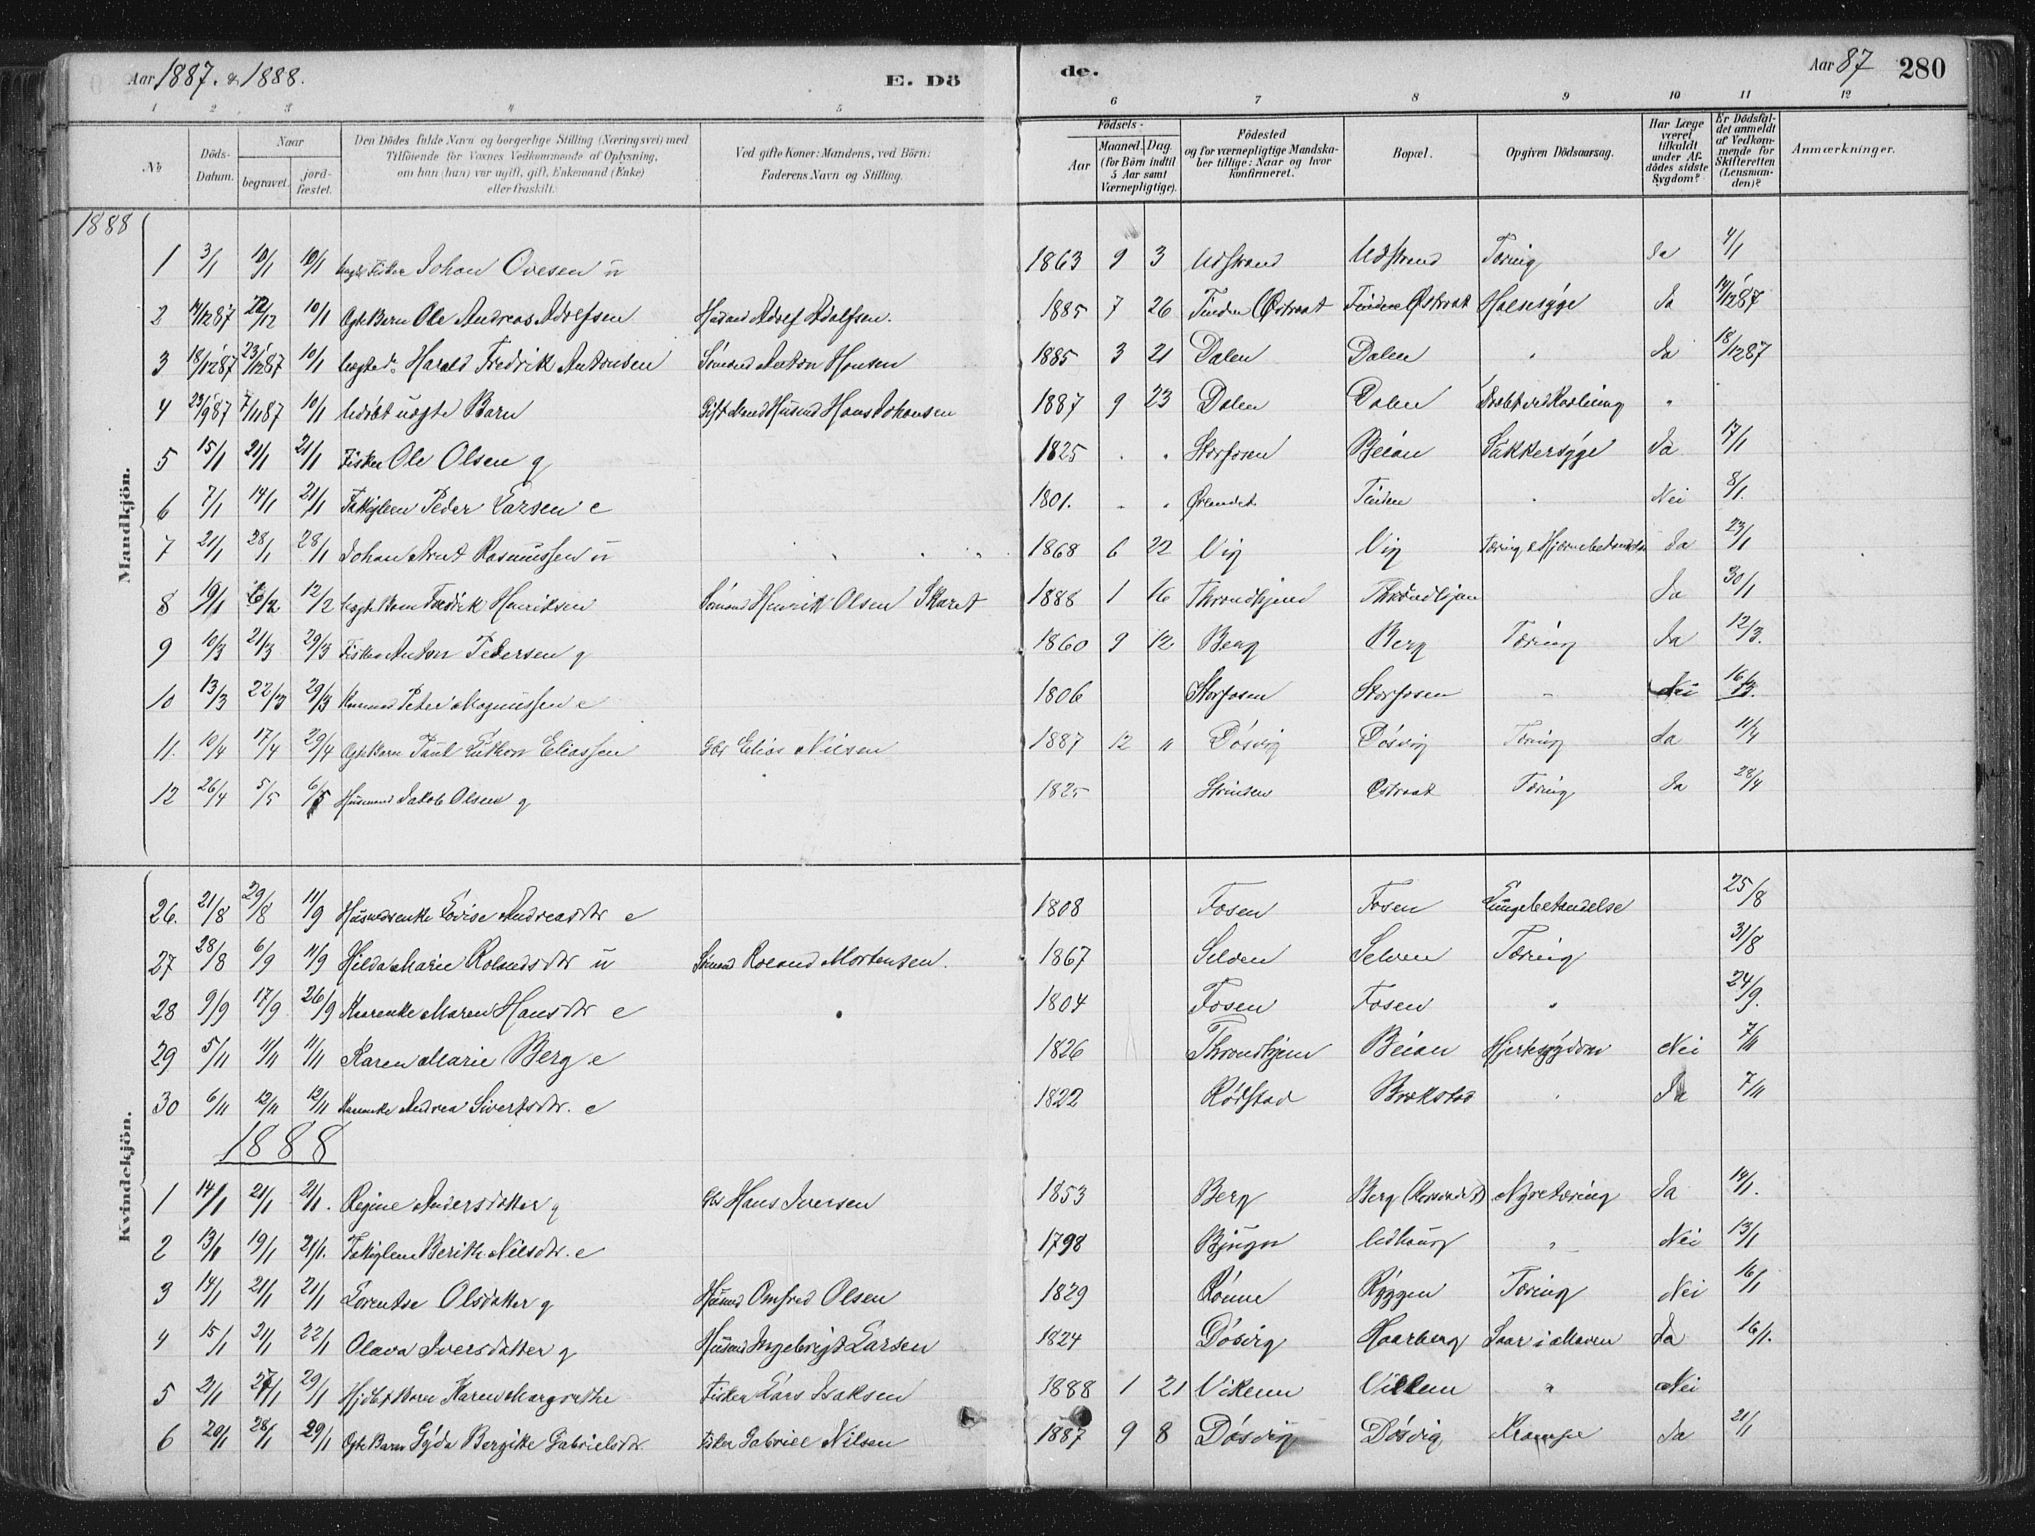 Aar 1887. & 1888. E. Dö de. Aar 87 280
1 2 3 4 5 6 7 8 9 10 11 12
No
Döds-Datum.
Naar
begravet.
jord-fæstet.
Den Dödes fulde Navn og borgerlige Stilling (Næringsvei) med
Tilföiende for Voxnes Vedkommende af Oplysning,
om han (hun) var ugift, gift, Enkemand (Enke)
eller fraskilt.
Ved gifte Koner: Mandens, ved Börn:
Faderens Navn og Stilling.
Födsels-
Aar
Maaned. Dag.
(for Börn indtil
5 Aar samt
Værnepligtige).
Födested
og for værnepligtige Mandska-
ber tillige: Naar og hvor
konfirmeret.
Bopæl.
Opgiven Dödsaarsag.
Har Læge
været
tilkaldt
under Af-
dödes sidste
Sygdom?
Er Dödsfal-
det anmeldt
af Vedkom-
mende for
Skifteretten
(Lensman-
den)?
Anmærkninger.
1888
Mandkjön.
1 3/1 10/1 10/1 Johan Ovesen u 1863 9 3 Udstrand Udstrand Tæring Ja 4/1
2 14/12 87 22/12 10/1 Ægte Barn Ole Andreas Adolfsen Husmd Adolf Adolfsen. 1885 7 26 Tinden Østraat Tinden Østraat Halssyge Ja 14/12 87
3 18/12 87 23/12 87 10/1 Harald Fredrik Antonsen Sömand Anton Hansen 1885 3 21 Dalen Dalen " Ja 18/12 87
4 23/9 87 7/11 87 10/1 Udöbt uægte Barn Gift Mand Husmd Hans Johansen 1887 9 23 Dalen Dalen "
5 15/1 21/1 21/1 Fisker Ole Olsen g 1825 " " Storfosen Beian Sukkersyge Ja 17/1
6 7/1 14/1 21/1 Peder Larsen e 1801. " " Ørlandet Tinden " Nei 8/1.
7 21/1 28/1 28/1 Johan Arnt Rasmussen u 1868 6 22 Vig Vig Tæring & Hjernebetændelse Ja 23/1
8 19/1 6/2 12/2 Fredrik Henriksen Sömand Henrik Olsen Skaret 1888 1 16 Throndhjem Throndhjem Ja 30/1
9 10/3 21/3 29/3 Fisker Anton Pedersen g 1860 9 12 Berg Berg Tæring Ja 12/3.
10 13/3 22/3 29/3 Peter Magnussen e 1806 Storfosen Storfosen " Nei 16/3.
11. 10/4 17/4 29/4 Ægte Barn Paul Eliassen Elias Nilsen 1887 12 " Dösvig Dösvig Tæring Ja 11/4
12 26/4 5/5 6/5 Husmand Jakob Olsen g 1825 Østraat Tæring Ja 28/4
Kvindekjön.
26. 21/8 29/8 11/9 Husmdsenke Lovise Andreasdtr e 1808 Fosen Fosen Lungebetændelse 25/8
27 28/8 6/9 11/9 Hilda Marie Rolandsdtr u Sömand Roland Mortensen. 1867 Selven Selven Tæring 31/8
28 9/9 17/9 26/9 Maren Hansdtr e 1804 Fosen Fosen " 24/9.
29 5/11 11/11 11/11 Karen Marie Berg e 1826 Throndhjem Beian Hjertesygdom Nei 7/11
30 6/11 12/11 12/11 Andrea Sivertsdtr. e 1822 Rödstad Brekstad " Ja 7/11
1888
1 14/1 21/1 21/1. Regine Andersdatter g Gbr Hans Iversen 1853 Berg Berg Nyretæring Ja 14/1.
2 13/1 19/1 21/1. Berith Nilsdtr. e 1798 Bjugn Udhaug " Nei 13/1
3 14/1 21/1 21/1 Lorentse Olsdatter g Husmd Olsen 1829 Rönne Ryggen Tæring Nei 16/1
4 15/1 21/1 22/1 Olava Iversdatter g Husmd Ingebrigt Larsen 1824 Dösvig Haarberg Saar i Maven Ja 16/1.
5 21/1 27/1 29/1 Hjdöbt Barn Karen Margrethe Fisker Lars Isaksen 1888 1 21 Viklem Viklem " Nei
6 20/1 28/1 29/1 Ægte Barn Gyda Bergitte Gabrielsdtr. Fisker Gabriel Nilsen 1887 9 8 Dösvig Dösvig Krampe Ja 21/1